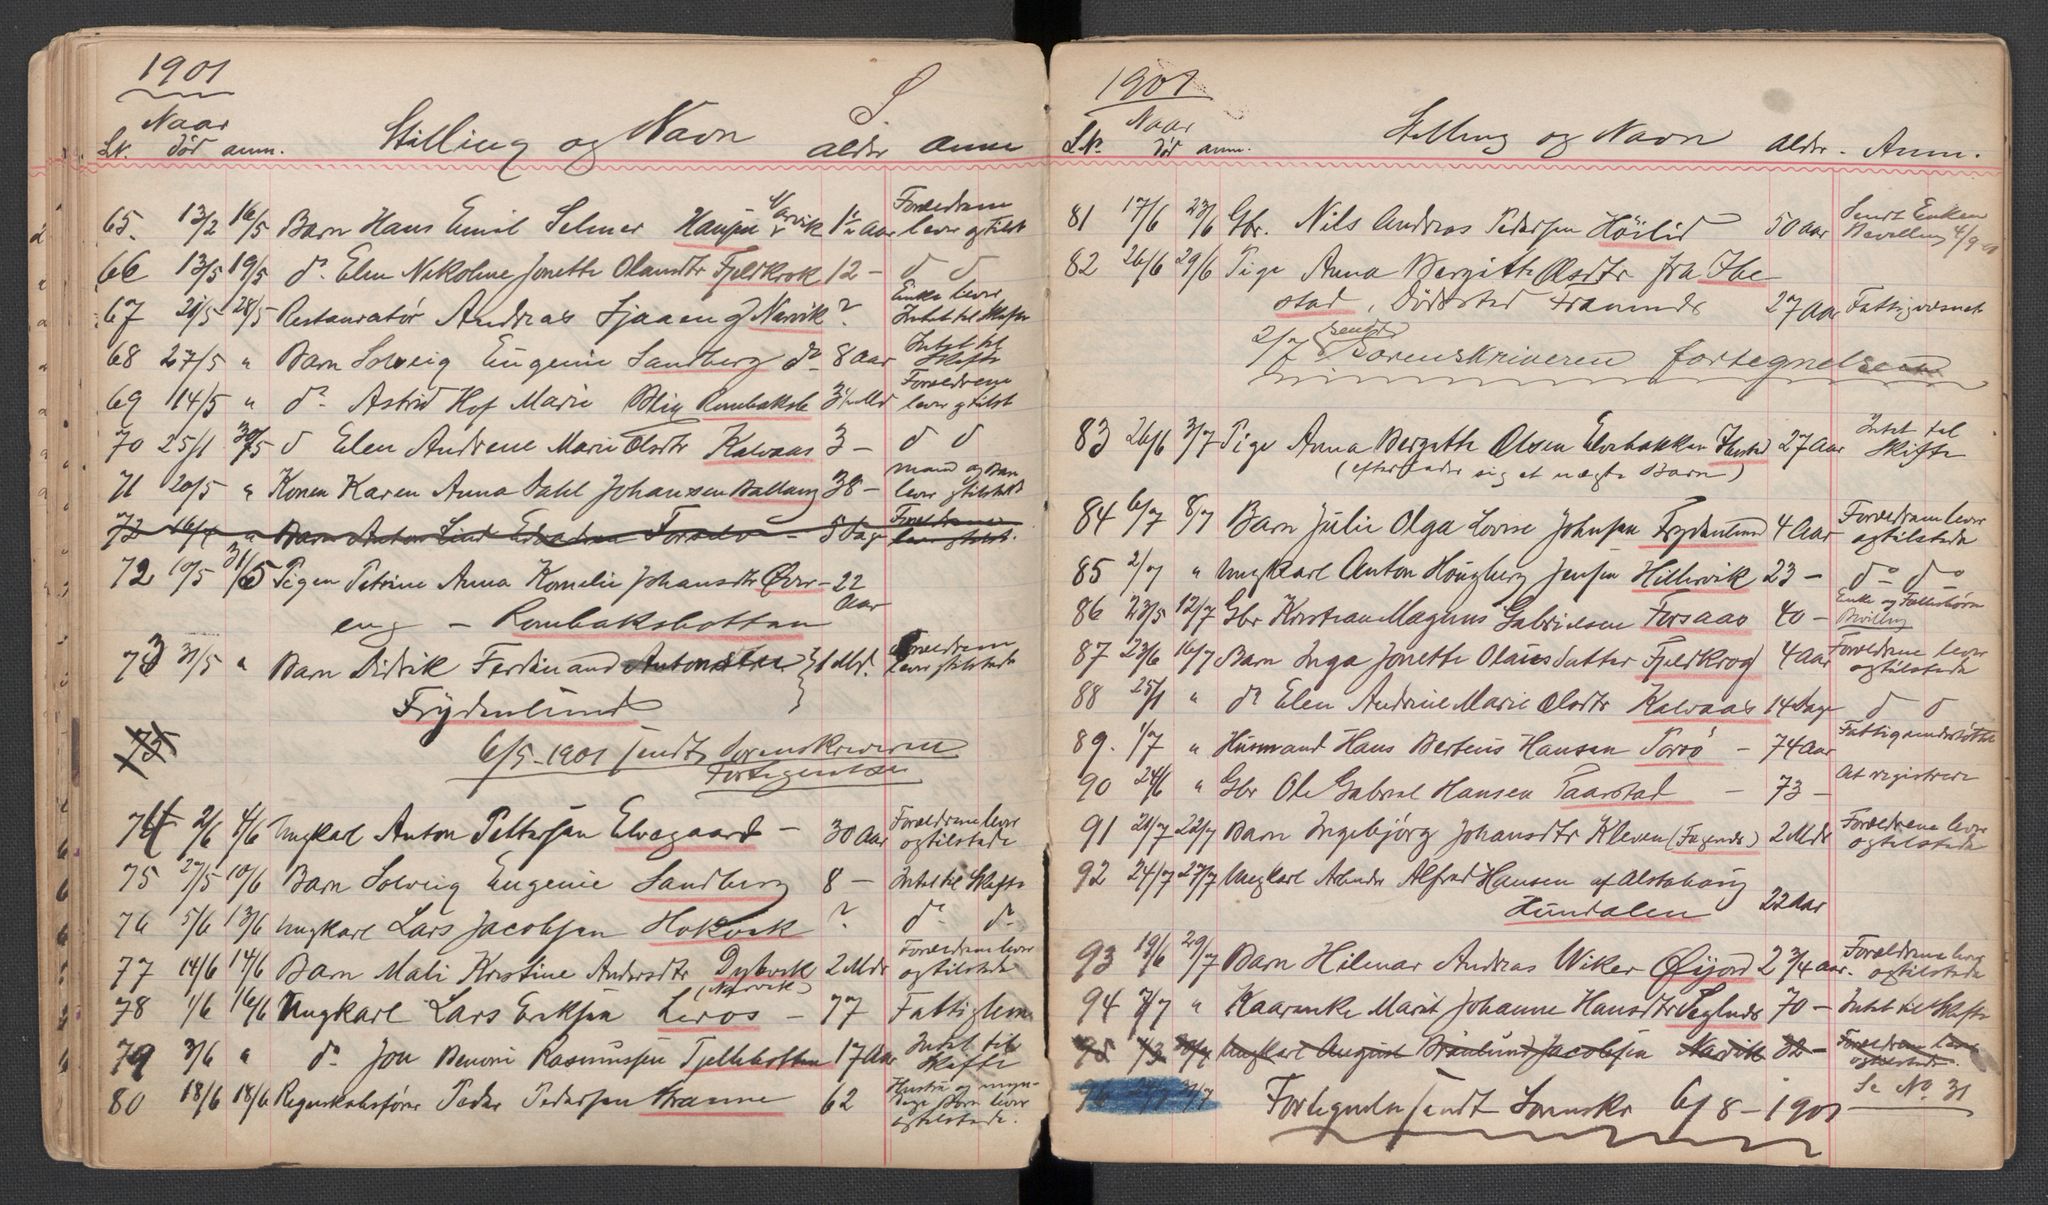 1901
Naar
Lk. død anm. Stilling og Navn alder anm
65. 13/2 16/5 Barn Hans Emil Selmer Hansen Narvik 1½ Aar Forældrene lever og tilst
66 13/5 19/5 do. Elen Nikoline Jonette Olausdtr Fjeldkrok 12 - d d
67 21/5 28/5 Restauratør Andreas Narvik ? Enke lever Intet til Skifte
68 27/5 " Barn Solveig Eugenie Sandberg do 8 Aar Intet til Skifte
69 14/5 " do Astrid Hof Marie Rombaksb 3½ Md Forældrene lever og tilst
70 25/1 30/5 d Elen Andrene Marie Olsdtr Kalvaas 3 - d d
71 20/5 " Konen Karen Anna Dahl Johansen Ballang 38 - mand og Barn lever og tilstede
72 16/4 " Barn Anton 5 Dage Forældrene lever og tilst.
72 10/5 31/5 Pigen Petrine Anna Kornelie Johansdtr Øver- 22 Aar
eng - Rombaksbotten
73 31/5 " Barn Didrik Ferdinand 1 Md. Forældrene lever og tilstede
Frydenlund
75
6/5 - 1901 sendt Sorenskriveren
Fortegnelse
74 2/6 4/6 Ungkarl Anton Pettersen Elvegaard - 30 Aar Forældrene lever og tilstede
75 27/5 10/6 Barn Solveig Eugenie Sandberg 8 - Intet til Skifte
76 5/6 13/6 Ungkarl Lars Jacobsen Hokvik ? do do
77 14/6 14/6 Barn Mali Kristine Andersdtr Dybvik 2 Mdr Forældrene lever og tilstede
(Narvik)
78 1/6 16/6 Ungkarl Lars Eriksen Leros - 77 Fattiglem
79 3/6 " do Jon Benoni Rasmussen Fjellbotten 17 Aar Intet til Skifte
80 18/6 18/6 Regnskabsfører Peder Pedersen 62 Hustru og myndige Barn lever og tilstede.
1901
Naar
LN. død anm. Stilling og Navn Alder. Anm.
81 17/6 23/6 Gbr. Nils Andreas Pedersen Höilid 50 Aar Sendt Enken Bevilling 4/9 01
82 26/6 29/6 Pige Anna Bergitte Olsdtr fra Ibe
stad, Dödssted Framnes 27 Aar Fattigvæsnet
2/7 sendt Sorenskriveren fortegnelsen
83 26/6 3/7 Pige Anna Bergette Olsen Elvebakken Ibestad 27 Aar Intet til Skifte
(efterlader sig et uægte Barn)
84 6/7 8/7 Barn Julie Olga Lovise Johnsen Frydenlund 4 Aar Forældrene lever og tilstede
85 2/7 " Ungkarl Anton Hougberg Jensen Hillervik 23 - do do
86 23/5 12/7 Gbr Kristian Magnus Gabrielsen Forsaas 40 - Enke og Fællesbørn Bevilling
87 23/6 16/7 Barn Inga Jonette Olausdatter Fjeldkrog 4 Aar Forældrene lever og tilstede
88 25/1 " do Elen Andrine Marie Olsdtr Kalvaas 14 Dage d d
89. 1/7 " Husmand Hans Berteus Hansen Forsö - 74 Aar Fattigunderstøttet
90 24/6 " Gbr Ole Gabriel Hansen Taarstad - 73 - At registrere
91 21/7 22/7 Barn Ingebjörg Johansdtr Kleven (Fagernes) 2 Mdr Forældrene lever og tilstede
92 24/7 27/7 Ungkarl Arbeider Alfred Hansen af Alstahaug
Hundalen 22 Aar
93 19/6 29/7 Barn Hilmar Andreas Wiker Øijord 2 3/4 Aar. Forældrene lever og tilstede
94 7/7 " Kaarenke Marit Johanne Hansdtr 70 - Intet til Skifte
95 1/3 Ungkarl August Jacobsen Narvik 32 - Forældrene lever og tilstede.
96 Se No 31
Fortegnelse sendt Sorenskr 6/8 - 1901